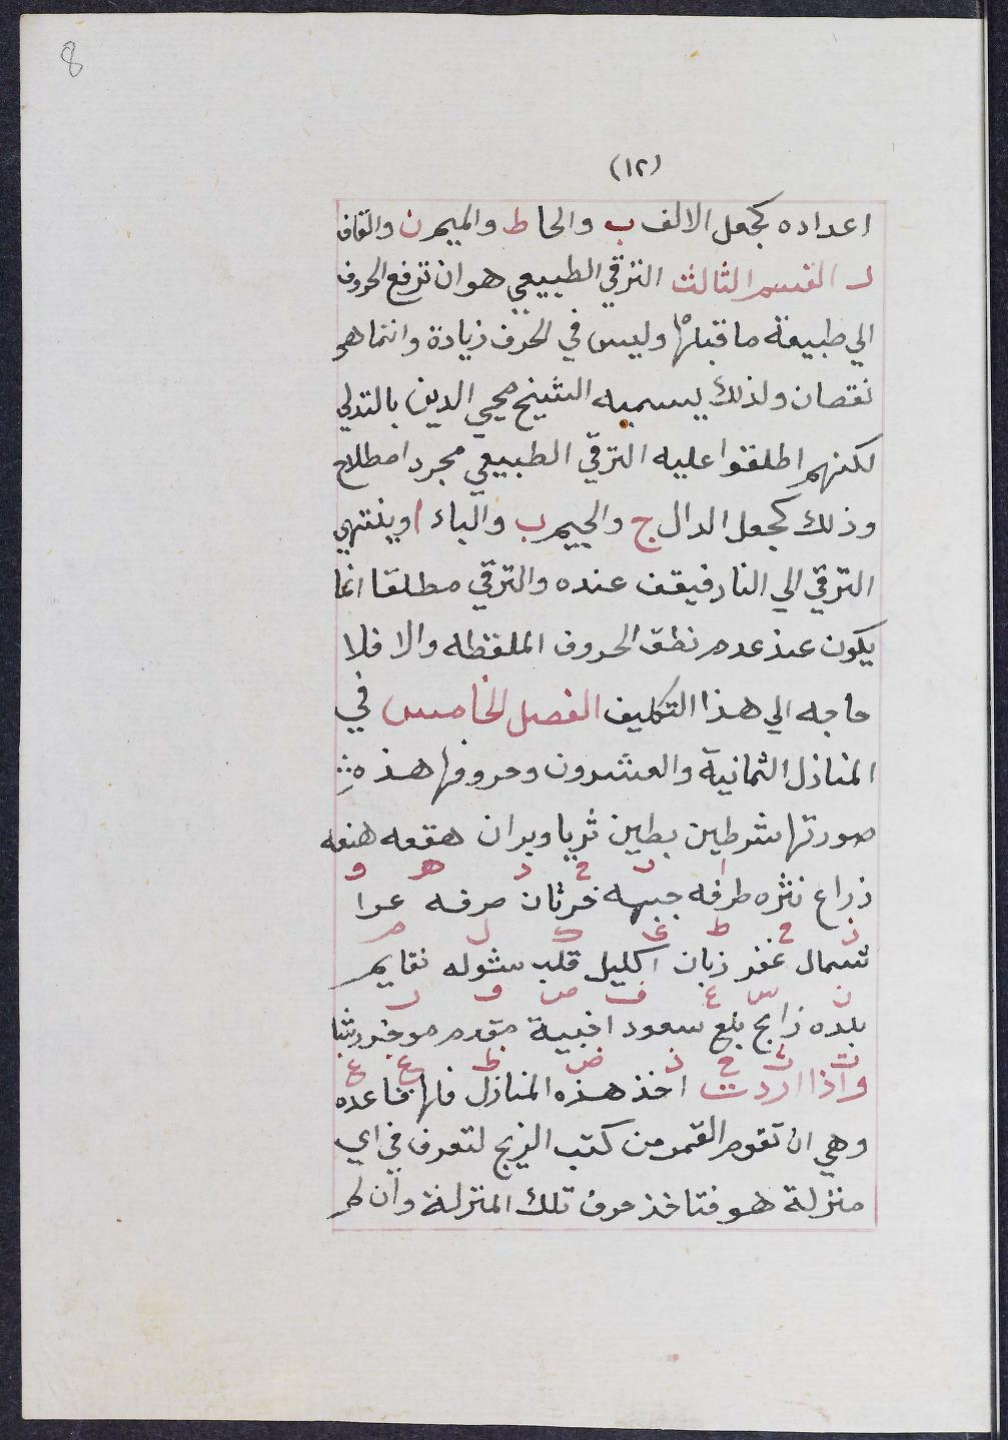 8
(١٢)
اعداده كجعل الالف ب والحا ط والميم ن والقاف
ر القسم الثالث الترقي الطبيعي هو ان ترفع الحروف
الي طبيعة ما قبلها وليس في الحرف زيادة وانما هو
نقصان ولذلك يسميه الشيخ محيي الدين بالتدلي
لكنهم اطلقوا عليه الترقي الطبيعي مجرد اصطلاح
وذلك كجعل الدال ج والجيم ب والباء ا وينتهي
الترقي الي النار فيقف عنده والترقي مطلقا انما
يكون عند عدم نطق الحروف الملقطه والا فلا
حاجه الي هذا التكليف الفصل الخامس في
المنازل الثمانية والعشرون وحروفها هذه
صورتها شرطين بطين ثريا وبران هقعه هنعه
ا ب ج د ه و
ذراع نثره طرفه جبهه خرثان صرفه عوا
ز ح ط ي ك ل م
شمال غفر زبان اكليل قلب شوله نقايم
ن س ع ف ص ق ر
بلده ذابح بلع سعود اخبية مقدم موخر رشا
ت ث خ ذ ض ظ غ
واذا اردت اخذ هذه المنازل فلها قاعده
وهي ان تقوم القمر من كتب الزيج لتعرف في اي
منزلة هو فتاخذ حرف تلك المنزلة وان لم